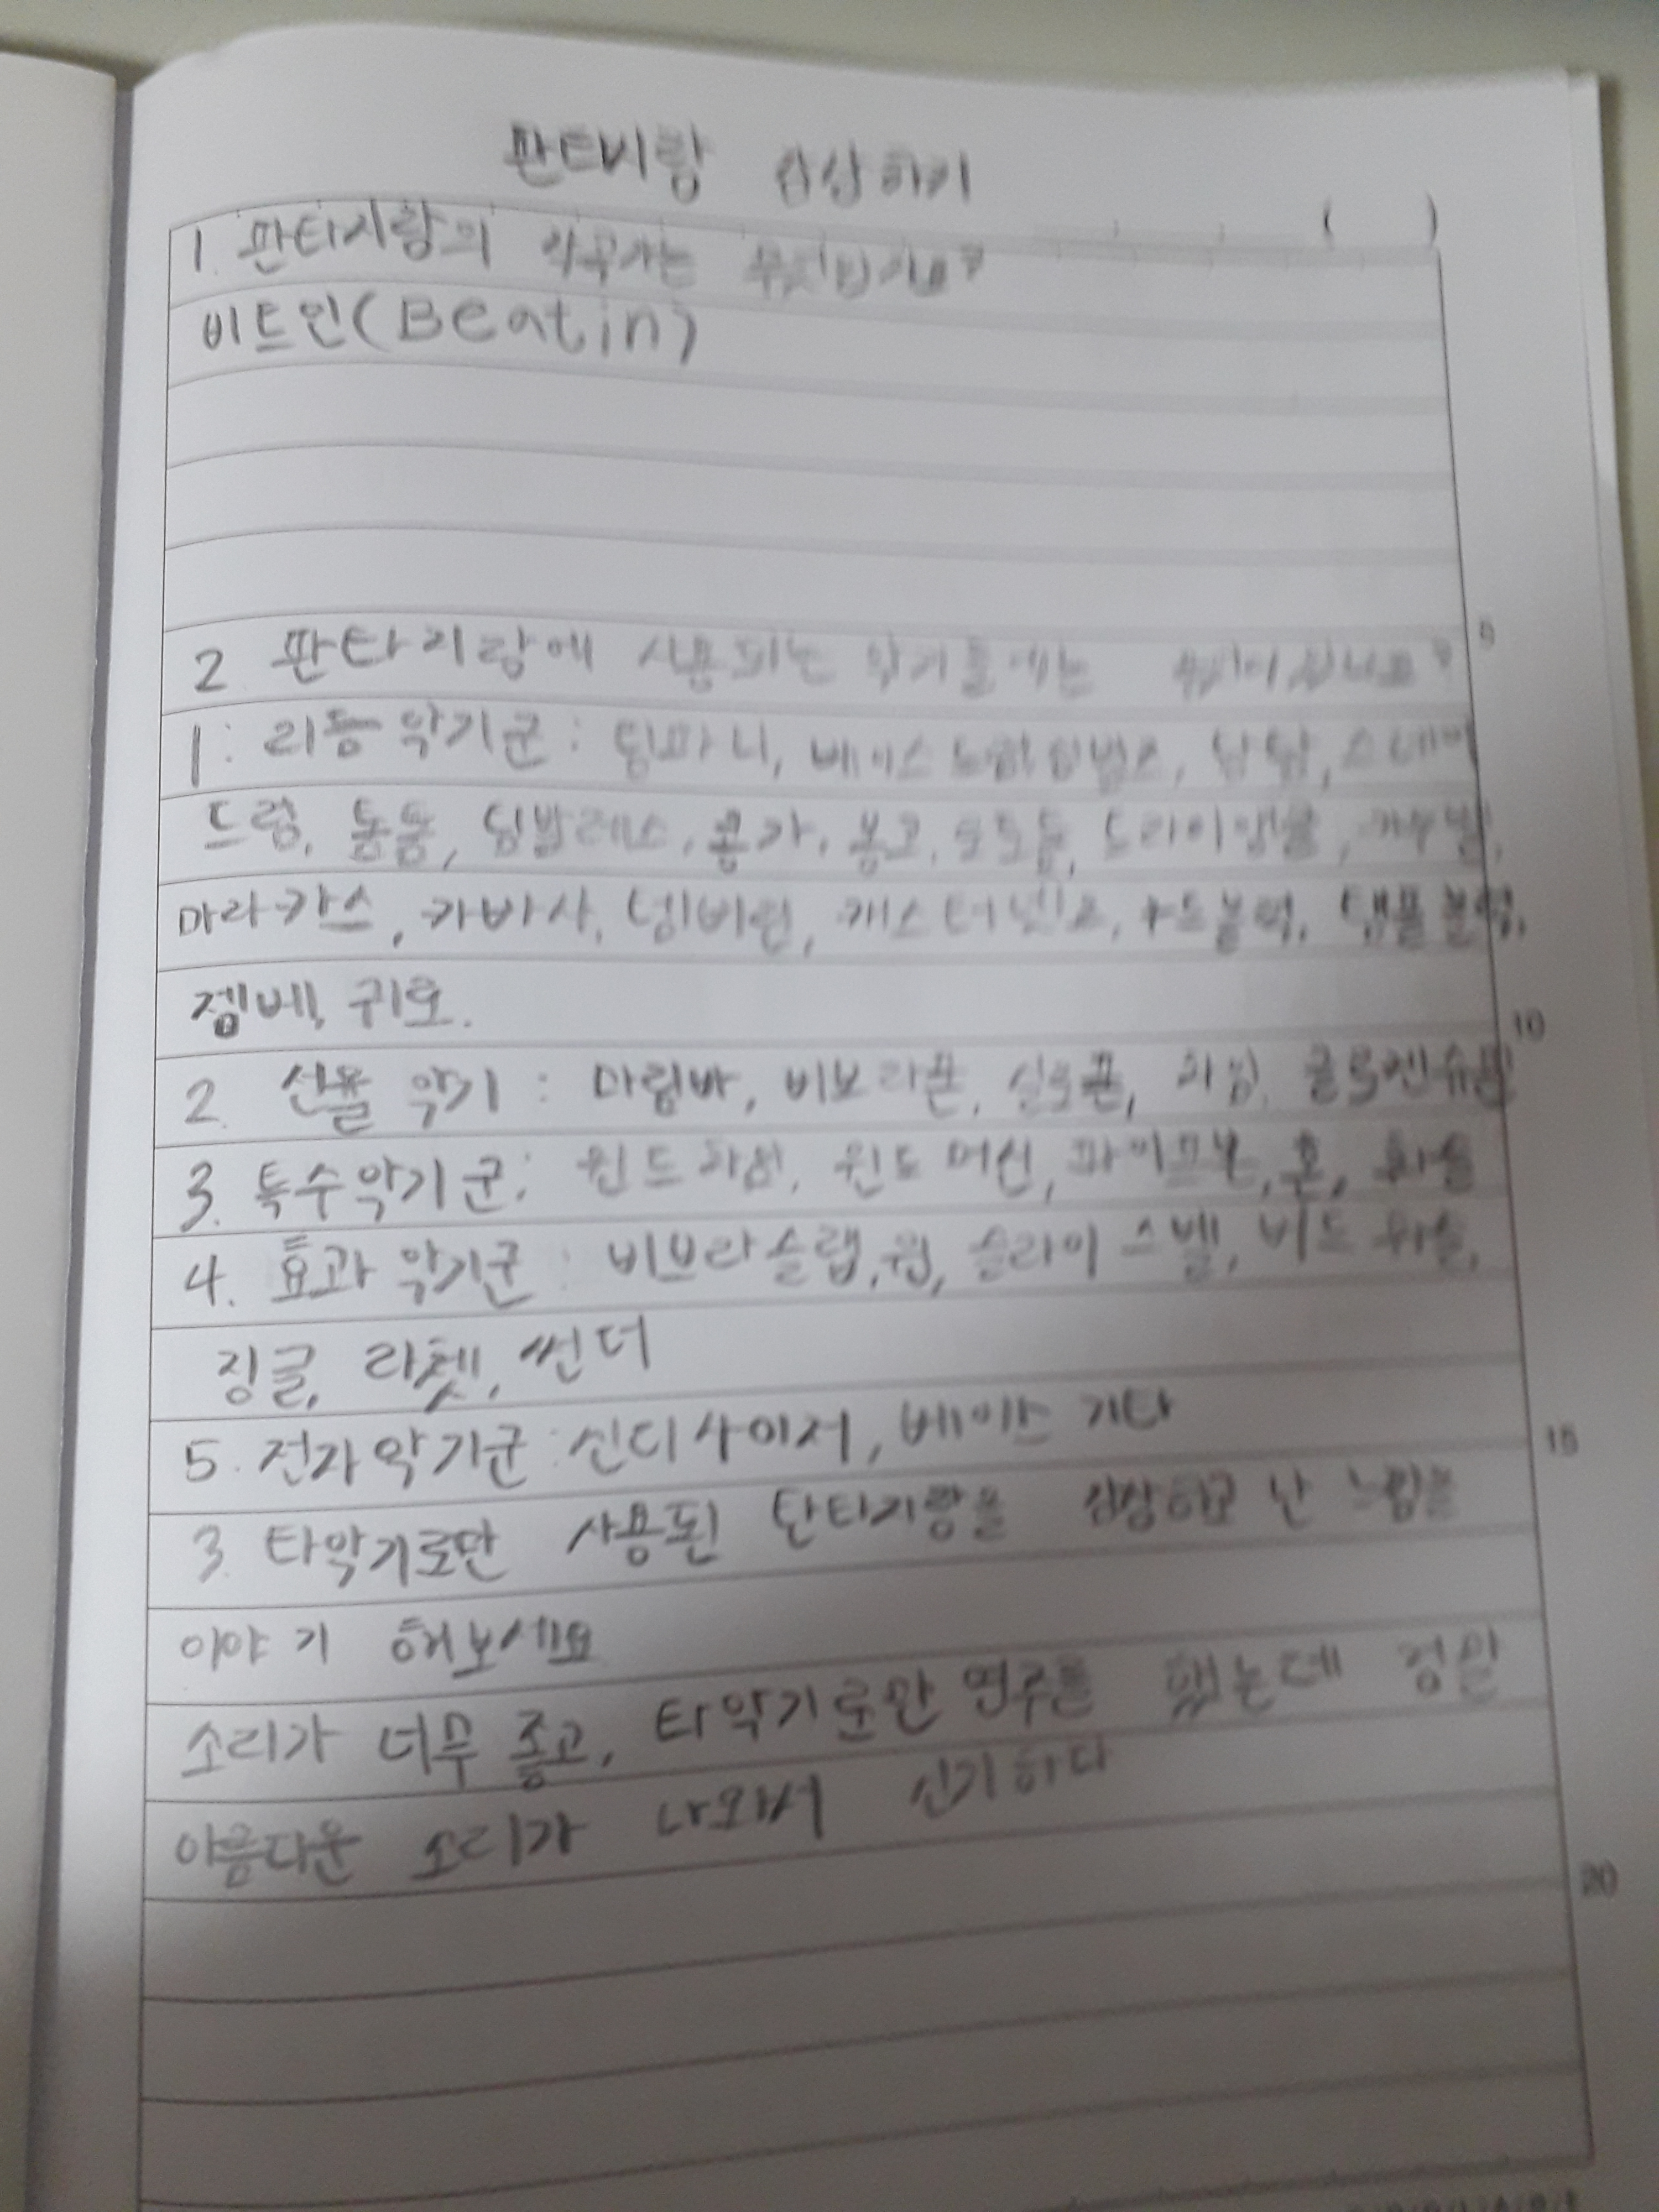 판타지랑 감상하기
( )
1. 판타지랑의 작곡가는
비트인(Beatin)
5
2 판타지랑에 사용되는 악기들에는
1: 리듬악기군: 팀파니, 베이스드럼, 심벌즈, 탐탐, 스네어
드럼, 톰톰, 팀발레스, 콩가, 봉고, 로토톰, 트라이앵글, 카우벨,
마라카스, 카바사, 템버린, 캐스터네츠, 우드블럭, 탬플블럭,
젬베, 귀로.
10
2. 선율 악기 : 마림바, 비브라폰, 실로폰, 차임, 글로켄슈필
3. 특수악기군: 윈드차임, 윈드 머신, 파이프폰, 혼, 휘슬
4. 효과 악기군 : 비브라슬랩, 윕, 슬라이스벨, 버드 휘슬,
징글, 라쳇, 썬더
5. 전자악기군: 신디사이저, 베이스 기타
15
3. 타악기로만 사용된 판타지랑을 감상하고 난 느낌을
이야기 해보세요
소리가 너무 좋고, 타악기로만 연주를 했는데 정말
아름다운 소리가 나와서 신기하다
20